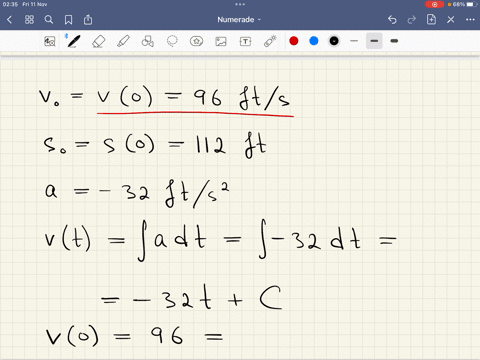 02:35 Fri 11 Nov
66%
Numerade
v₀ = v(0) = 96 ft/s
s₀ = s(0) = 112 ft
a = -32 ft/s²
v(t) = ∫a dt = ∫-32 dt =
= -32t + C
v(0) = 96 =